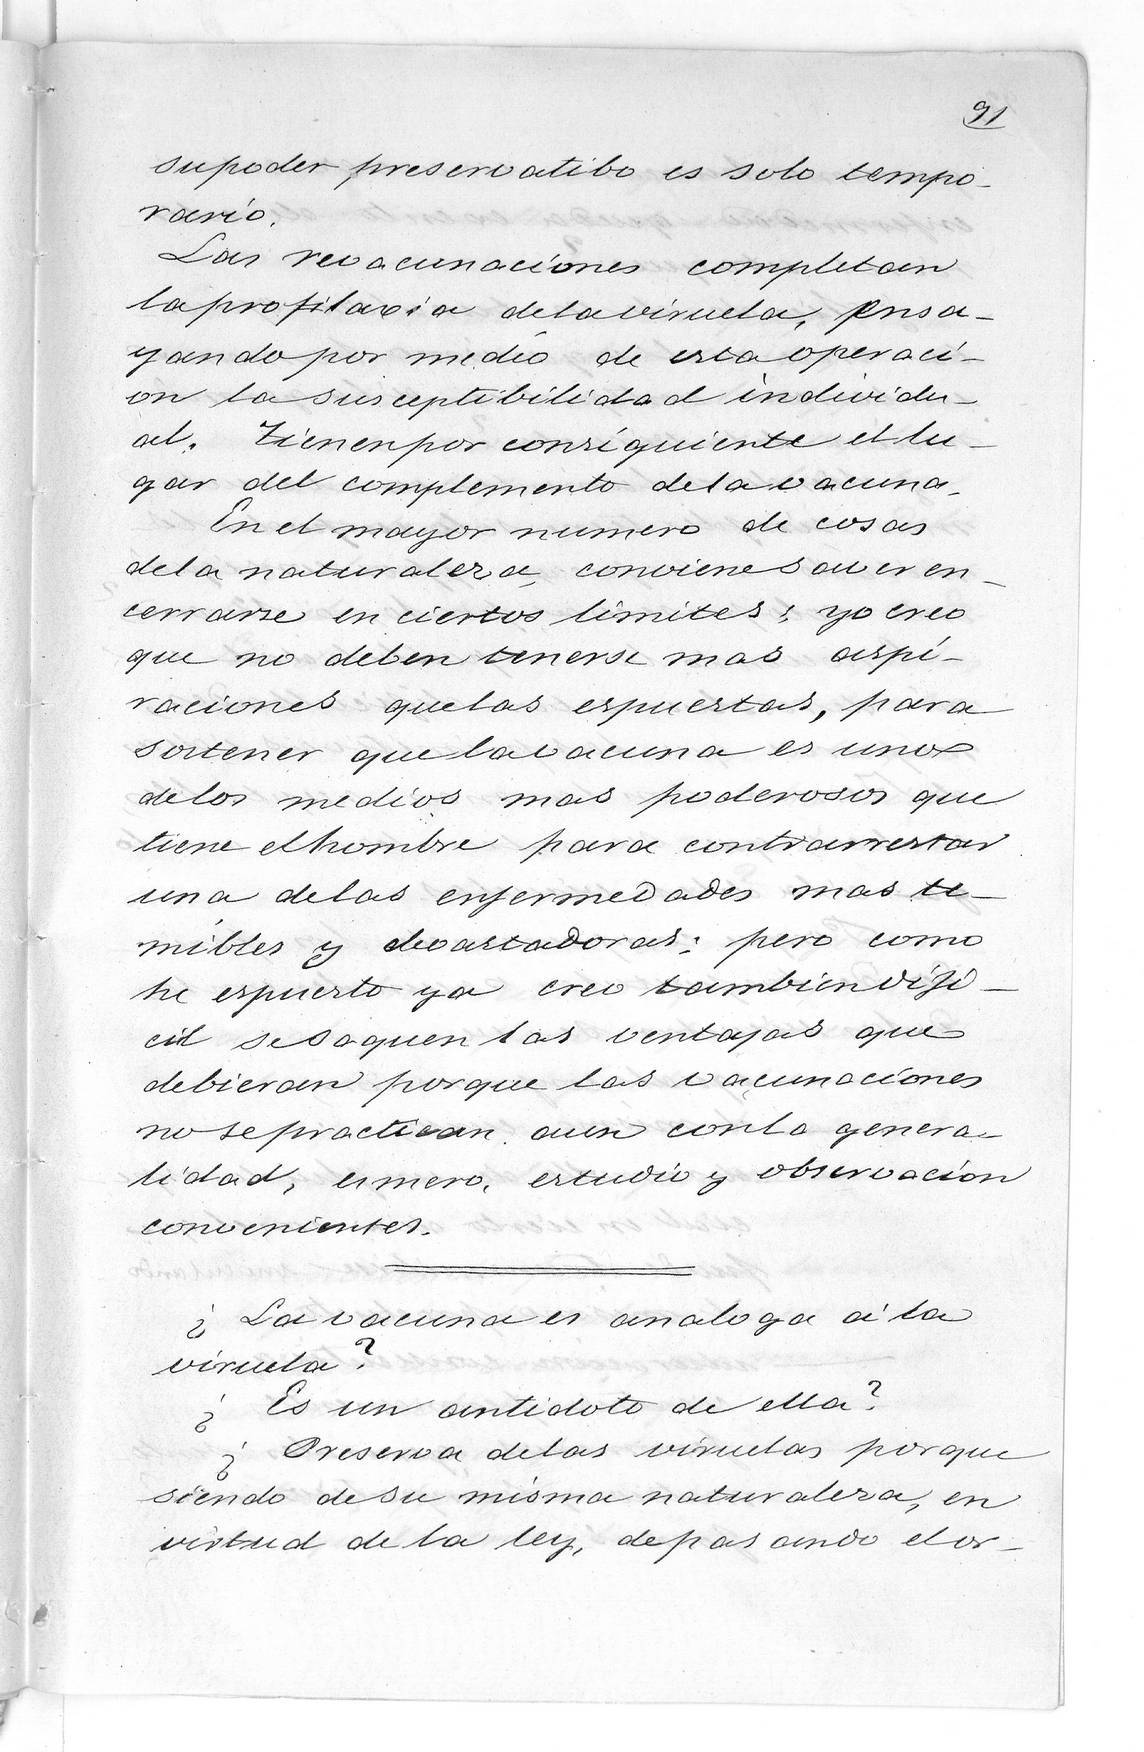 91
su poder preservatibo es solo tempo-
rario.
Las revacunaciones completan
la profilaxia de la viruela, ensa-
yando por medio de esta operaci-
on la susceptibilidad individu-
al. Tienen por consiguiente el lu-
gar del complemento de la vacuna.
En el mayor numero de cosas
de la naturaleza, conviene saver en-
cerrarse en ciertos limites; yo creo
que no deben tenerse mas aspi-
raciones que las espuestas, para
sostener que la vacuna es uno
de los medios mas poderosos que
tiene el hombre para contrarrestar
una de las enfermedades mas te-
mibles y devastadoras; pero como
he espuesto ya creo tambien difi-
cil se saquen las ventajas que
debieran porque las vacunaciones
no se practican aun con la genera-
lidad, esmero, estudio y observacion
convenientes.
¿ La vacuna es analoga á la
viruela?
¿ Es un antidoto de ella?
¿ Preserva de las viruelas porque
siendo de su misma naturaleza, en
virtud de la ley, de pasando el or-